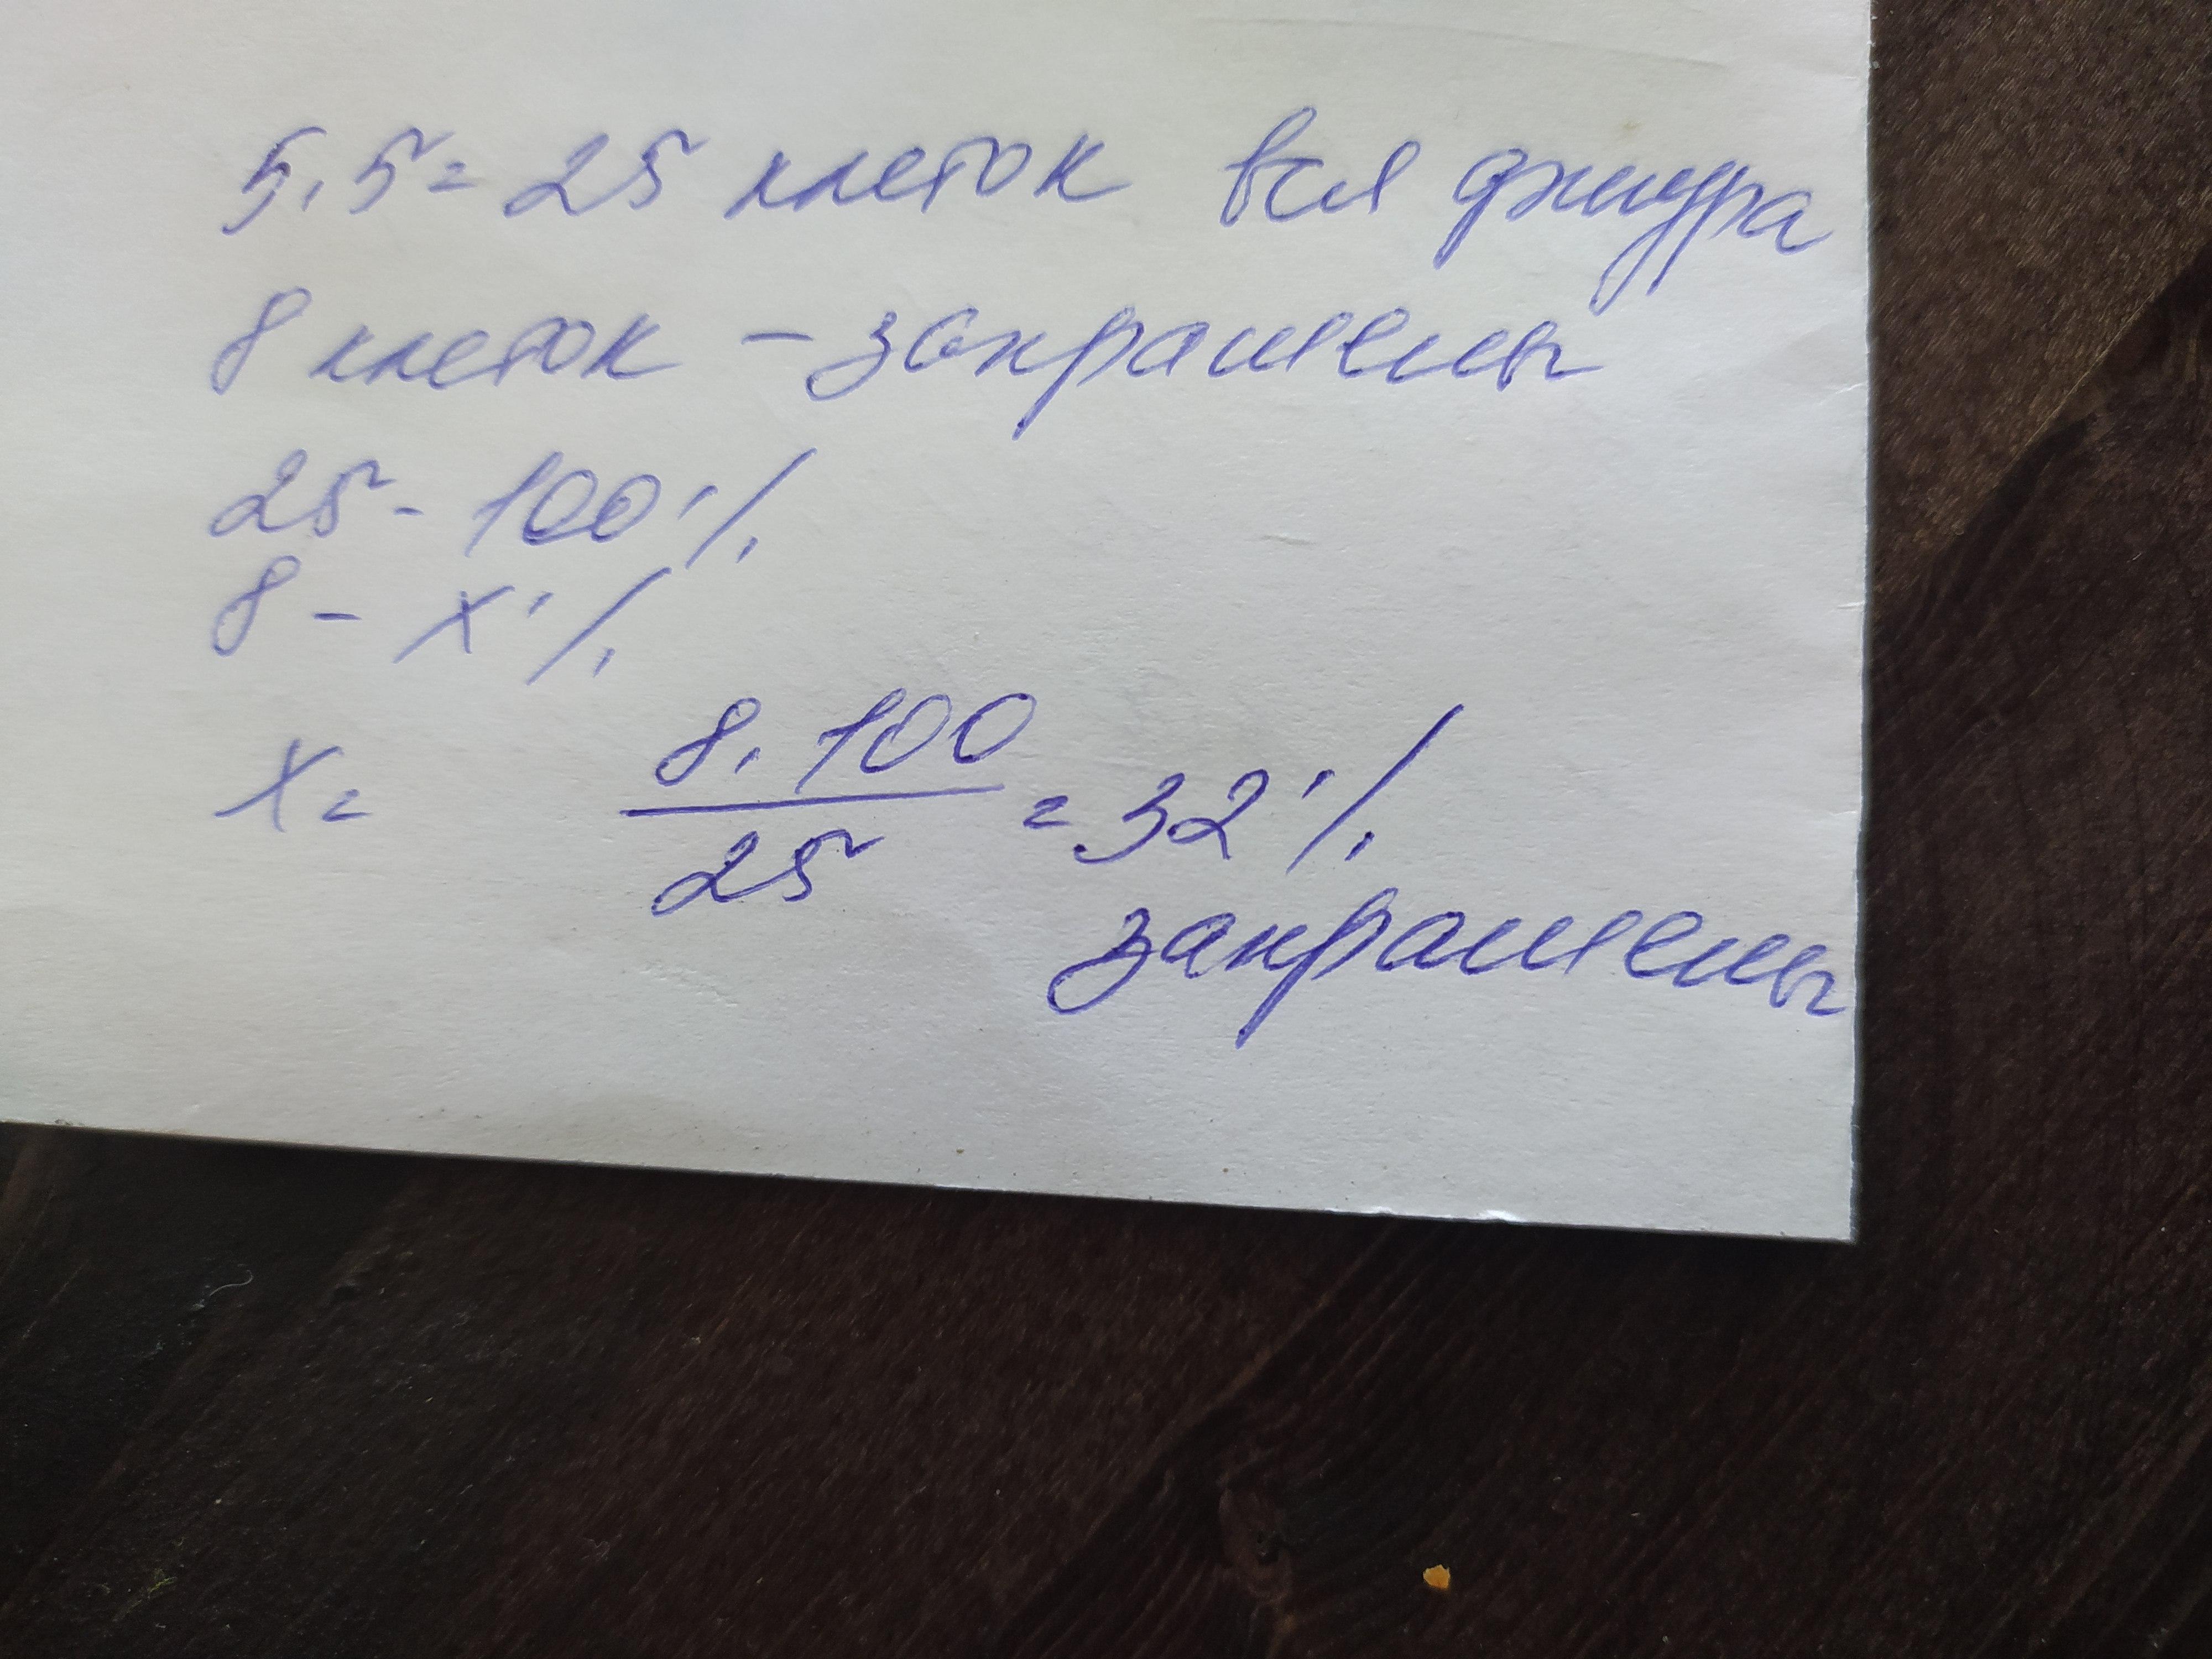 5·5=25 клеток вся фигура
8 клеток - закрашены
25 - 100%
8 - х%
х= 8·100
25
=32%
закрашены